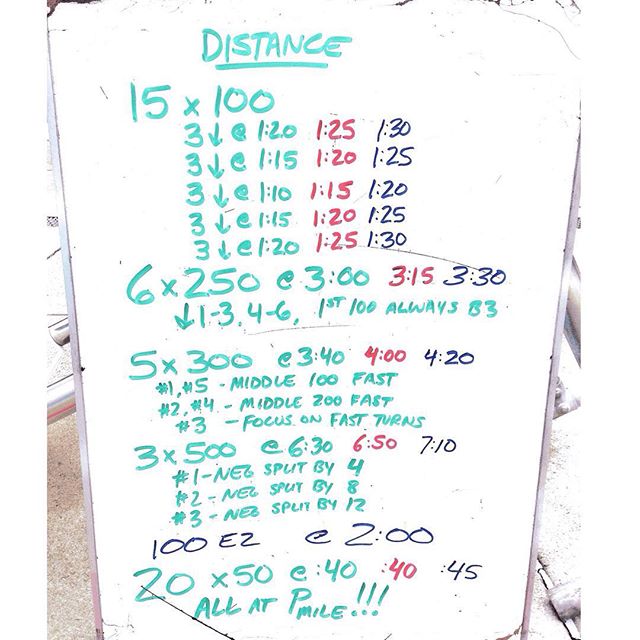 DISTANCE
15 x 100
3 ↓ @ 1:20 1:25 1:30
3 ↓ @ 1:15 1:20 1:25
3 ↓ @ 1:10 1:15 1:20
3 ↓ @ 1:15 1:20 1:25
3 ↓ @ 1:20 1:25 1:30
6 x 250 @ 3:00 3:15 3:30
↓ 1-3, 4-6, 1ST 100 ALWAYS B3
5 x 300 @ 3:40 4:00 4:20
#1, #5 - MIDDLE 100 FAST
#2, #4 - MIDDLE 200 FAST
#3 - FOCUS ON FAST TURNS
3 x 500 @ 6:30 6:50 7:10
#1 - NEG SPLIT BY 4
#2 - NEG SPLIT BY 8
#3 - NEG SPLIT BY 12
100 EZ @ 2:00
20 x 50 @ :40 :40 :45
ALL AT PMILE!!!